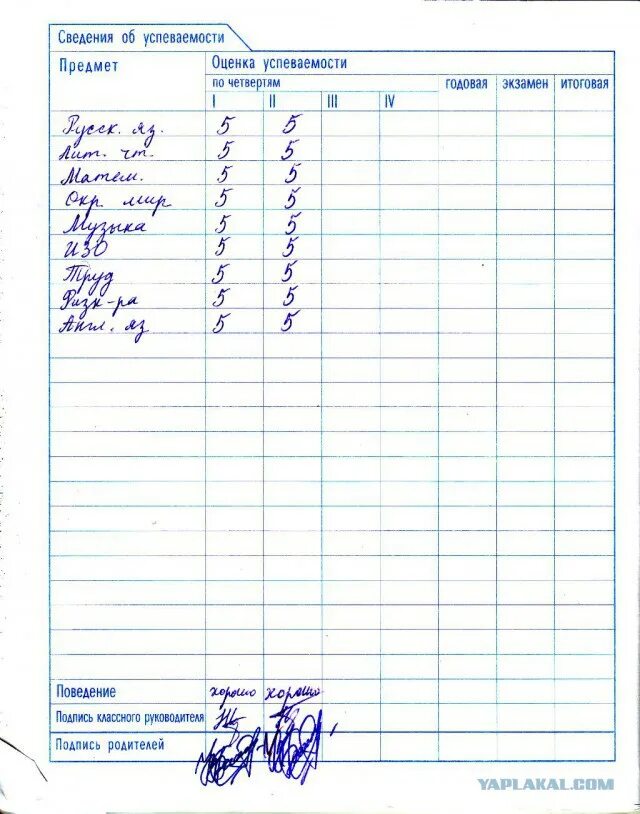 Сведения об успеваемости
Предмет
Оценка успеваемости
по четвертям годовая экзамен итоговая
I II III IV
Русск. яз. 5 5
Лит. чт. 5 5
Матем. 5 5
Окр. мир 5 5
Музыка 5 5
ИЗО 5 5
Труд 5 5
Физк-ра 5 5
Англ. яз 5 5
Поведение хорошо хорошо
Подпись классного руководителя
Подпись родителей
YAPLAKAL.COM